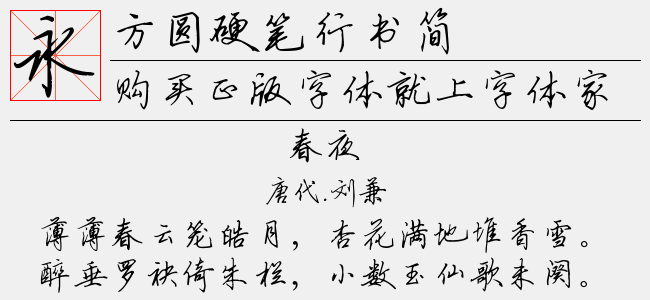 永
方圆硬笔行书简
购买正版字体就上字体家
春夜
唐代.刘兼
薄薄春云笼皓月，杏花满地堆香雪。
醉垂罗袂倚朱栏，小数玉仙歌未阕。